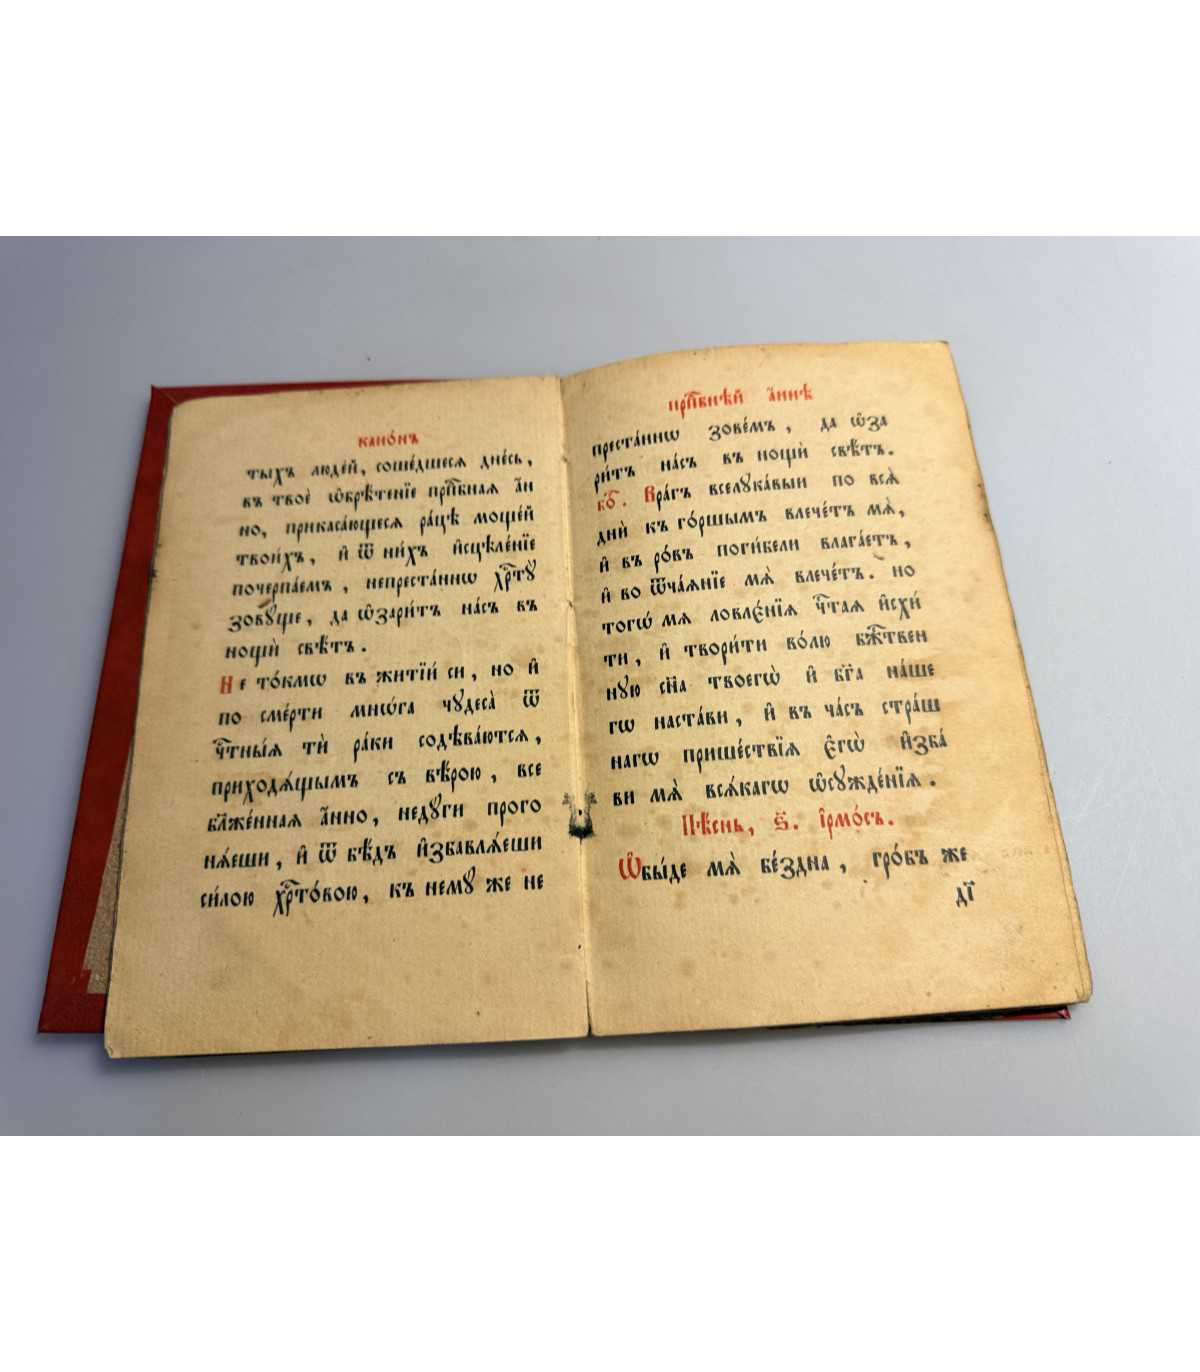 канѡ́нъ
тыхъ людей, соше́дшеся дне́сь,
въ твоѐ ѡ҆брѣ́тенїе прпⷣбная а҆́н
но, прикаса́ющеся ра́цѣ моще́й
твои́хъ, и҆ ѿ ни́хъ и҆сцѣле́нїе
почерпа́емъ, непреста́ннѡ хрⷭ҇тꙋ̀
зовꙋ́ще, да ѡ҆зари́тъ на́съ въ
нощѝ свѣ́тъ.
Не то́кмѡ въ житїѝ си, но и҆
по сме́рти мнѡ́га чꙋдеса̀ ѿ
чⷭ҇тны́ѧ тѝ ра́ки содѣва́ются,
приходѧ́щымъ съ вѣ́рою, все
бл҃же́нная а҆́нно, недꙋ́ги прого
нѧ́еши, и҆ ѿ бѣ́дъ и҆збавлѧ́еши
си́лою хрⷭ҇то́вою, къ немꙋ́ же не
прпⷣбнѣй а҆́ннѣ
преста́ннѡ зове́мъ, да ѡ҆за
ри́тъ на́съ въ нощѝ свѣ́тъ.
бг҃о. Вра́гъ вселꙋка́выи по всѧ̀
днѝ къ го́ршымъ влече́тъ мѧ̀,
и҆ въ ро́въ поги́бели влага́етъ,
и҆ во ѿча́ѧнїе мѧ̀ влече́тъ. но
тогѡ́ мѧ ловле́нїѧ чⷭ҇таѧ и҆схи́
ти, и҆ твори́ти во́лю бж҃твен
нꙋю сн҃а твоегѡ̀ и҆ бг҃а на́ше
гѡ наста́ви, и҆ въ ча́съ стра́ш
нагѡ прише́ствїѧ є҆гѡ̀ и҆зба́
ви мѧ̀ всѧ́кагѡ ѡ҆сꙋжде́нїѧ.
Пѣ́снь, ѕ҃. і҆рмо́съ.
Ѡ҆бы́де мѧ̀ бе́здна, гро́бъ же
ді҃